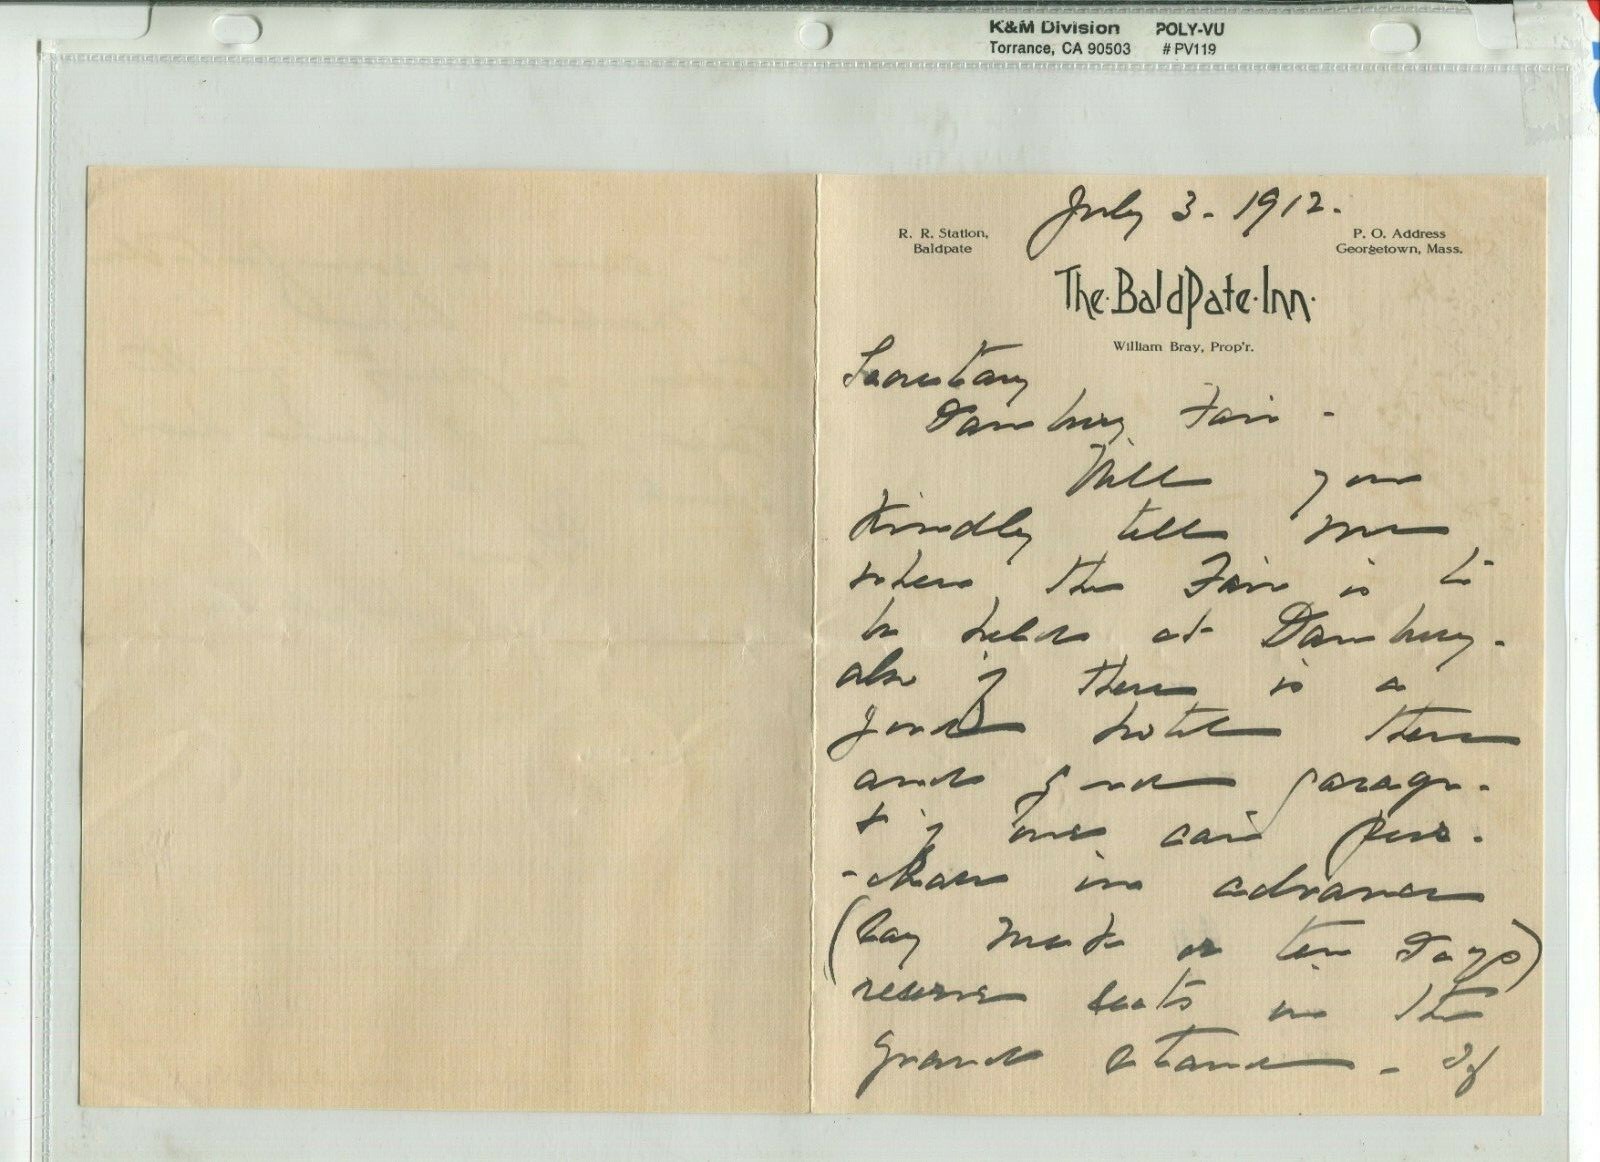 K&M Division POLY-VU
Torrance, CA 90503 # PV119
July 3. 1912.
R. R. Station,
Baldpate
P. O. Address
Georgetown, Mass.
The·BaldPate·Inn·
William Bray, Prop'r.
Secretary
Danbury Fair -
Will you
Kindly tell me
where the Fair is to
be held at Danbury.
also if there is a
good hotel there
and good garage.
+ if one can pur-
-chase in advance
(say week or ten days)
reserve seats in the
grand stand - If